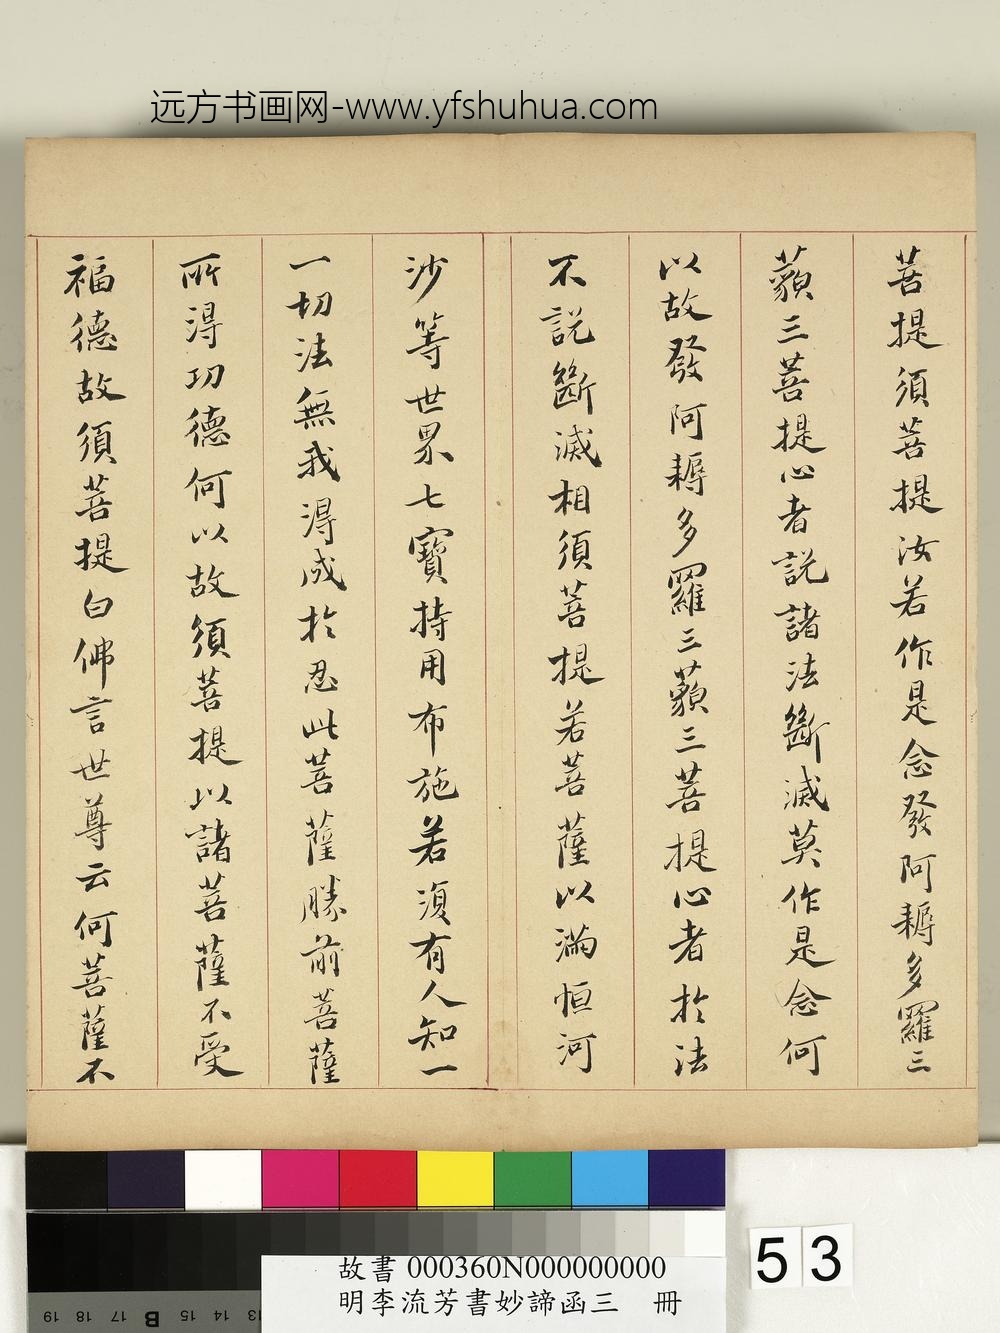 远方书画网-www.yfshuhua.com
菩提須菩提汝若作是念發阿耨多羅三
藐三菩提心者說諸法斷滅莫作是念何
以故發阿耨多羅三藐三菩提心者於法
不說斷滅相須菩提若菩薩以滿恒河
沙等世界七寶持用布施若須有人知一
一切法無我得成於忍此菩薩勝前菩薩
所得功德何以故須菩提以諸菩薩不受
福德故須菩提白佛言世尊云何菩薩不
53
故書 000360N000000000
明李流芳書妙諦函三 冊
19 18 17 B 15 14 13